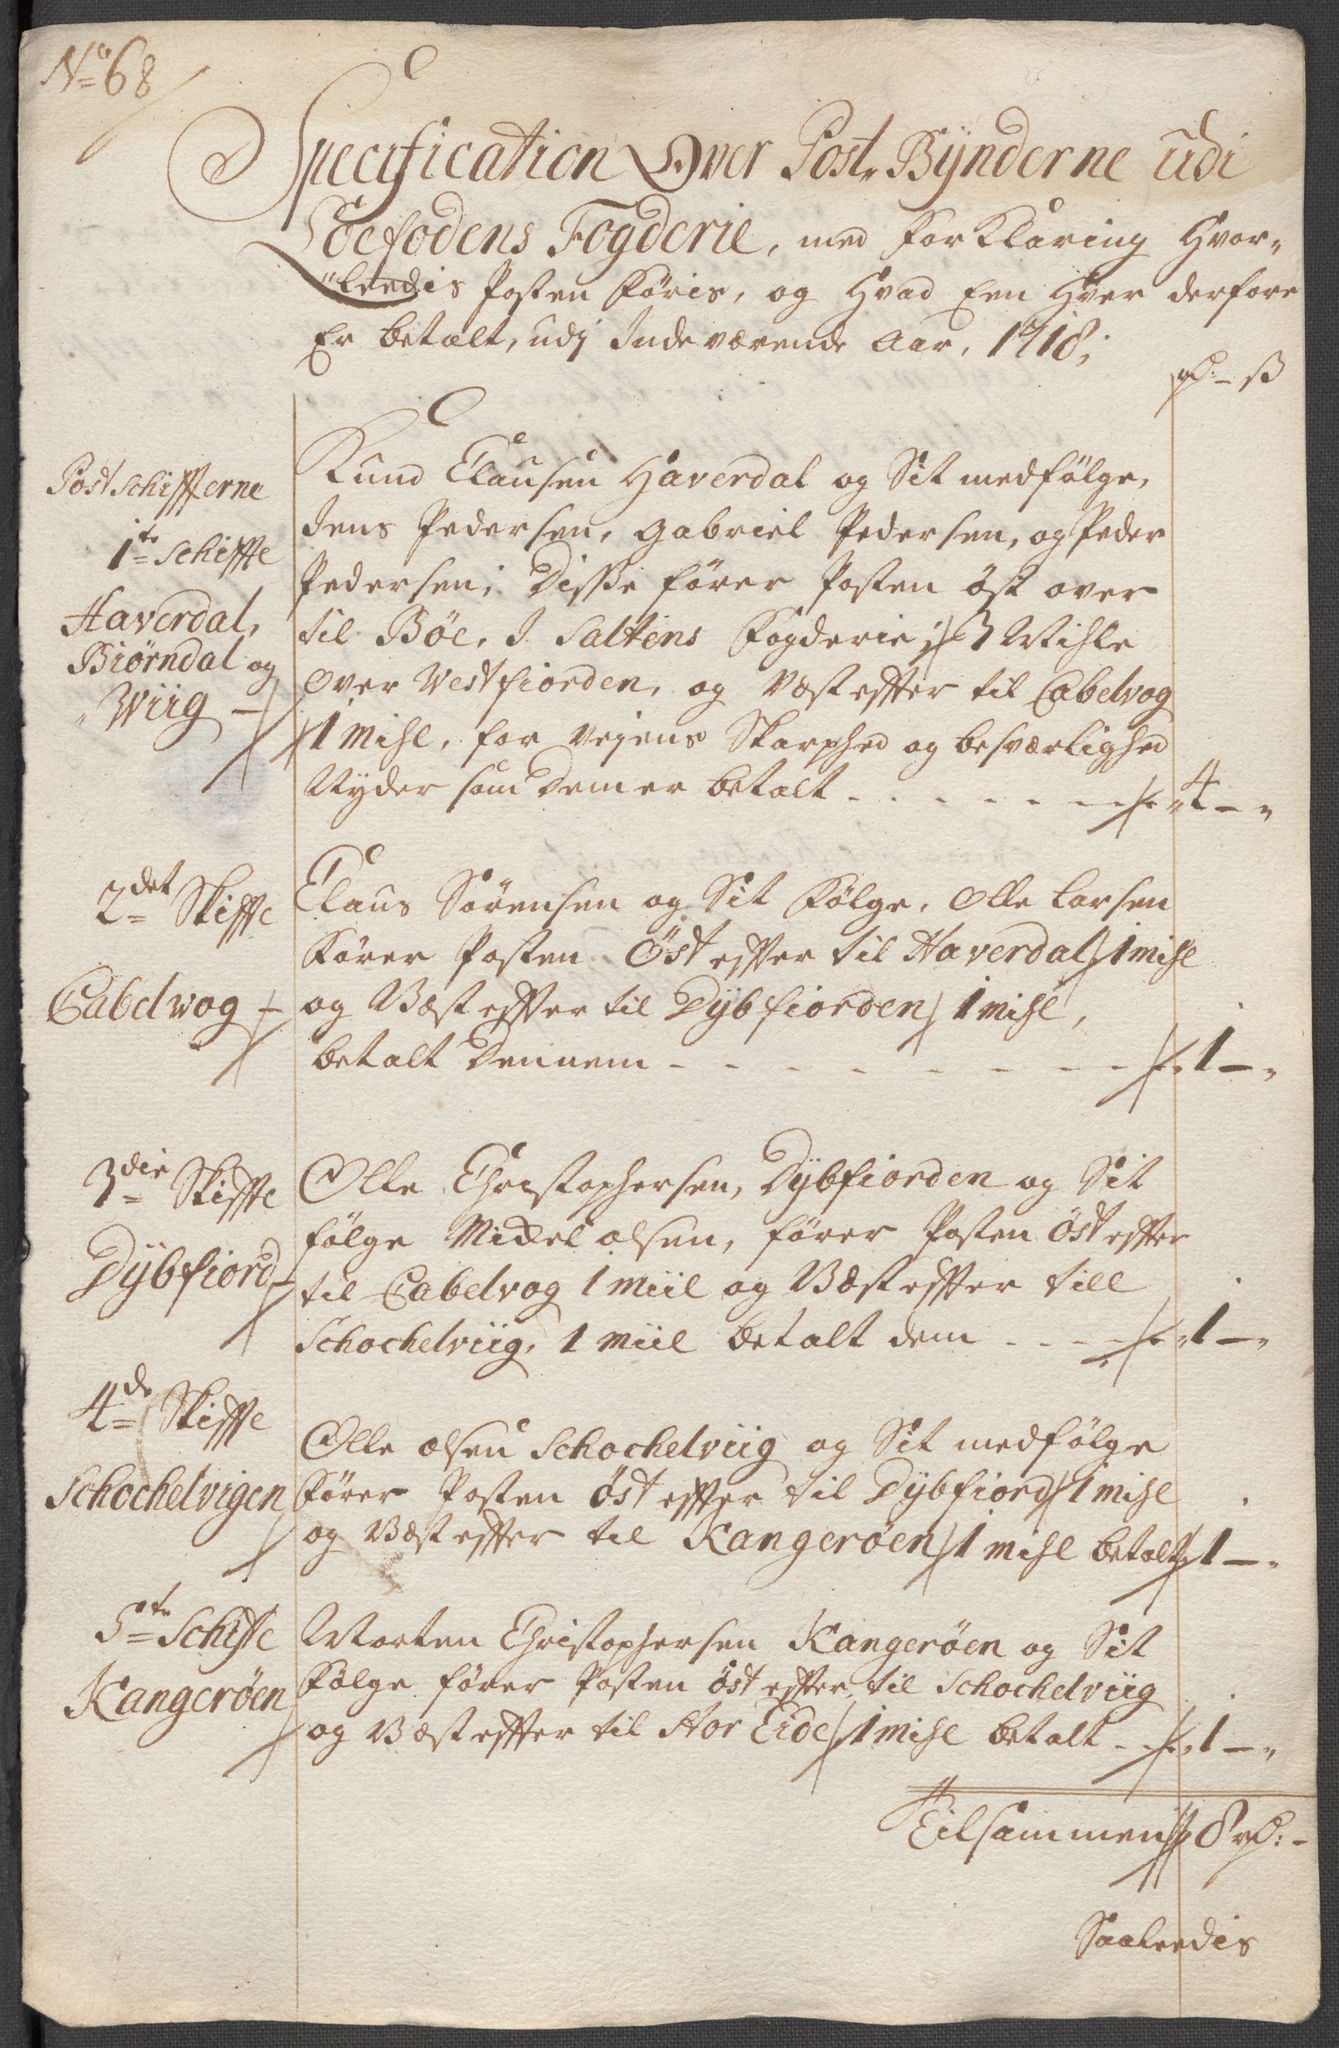 No 68
Specification Over Post Bÿnderne udi
Loefodens Fogderie, med forklaring Hvor-
"leedis Posten föris, og Hvad Een Hver derfore
Er betalt, udj Indeværende Aar, 1718;
rd: - ß
Post Schifferne
1te Schiffte
Haverdal,
Biörndal og
Wiig
Knud Clausen Haverdal og Sit medfölge,
Jens Pedersen, Gabriel Pedersen, og Peder
Pedersen; Disse förer Posten öst over
til Böe, I Saltens Fogderie, 7 Mihle
over Westfiorden, og Væst effter til Cabelvog
1 mihl, for Vejens Skarphed og besværlighed
Nyder som Dem er betalt - - - - - - 4 - "
2det Skiffte
Cabelwog
Claus Sörensen og Sit Fölge, Olle Larsen
förer Posten Öst effter til Haverdal 1 mihl
og Væst effter til Dÿbfiorden 1 mihl,
betalt Dennem - - - - - - - - 1 - "
3die Skiffte
Dÿbfiord
Olle Christophersen, Dÿbfiorden og Sit
fölge Mickel Olsen, förer Posten Öst effter
til Cabelvog 1 miil og Væst effter till
Schochelviig, 1 miil betalt dem - - - 1 - "
4de Skiffte
Schochelvigen
Olle Olsen Schochelviig og Sit medfölge
förer Posten öst effter til Dÿbfiord 1 mihl
og Væst effter til Kangeröen 1 mihl betalt 1 - "
5te Schiffte
Kangeröen
Morten Christophersen Kangeröen og Sit
Fölge förer Posten öst effter til Schochelviig
og Væst effter til Hor Eide 1 mihl betalt - - 1 - "
Tilsammen 8 rd: -
Saaleedis